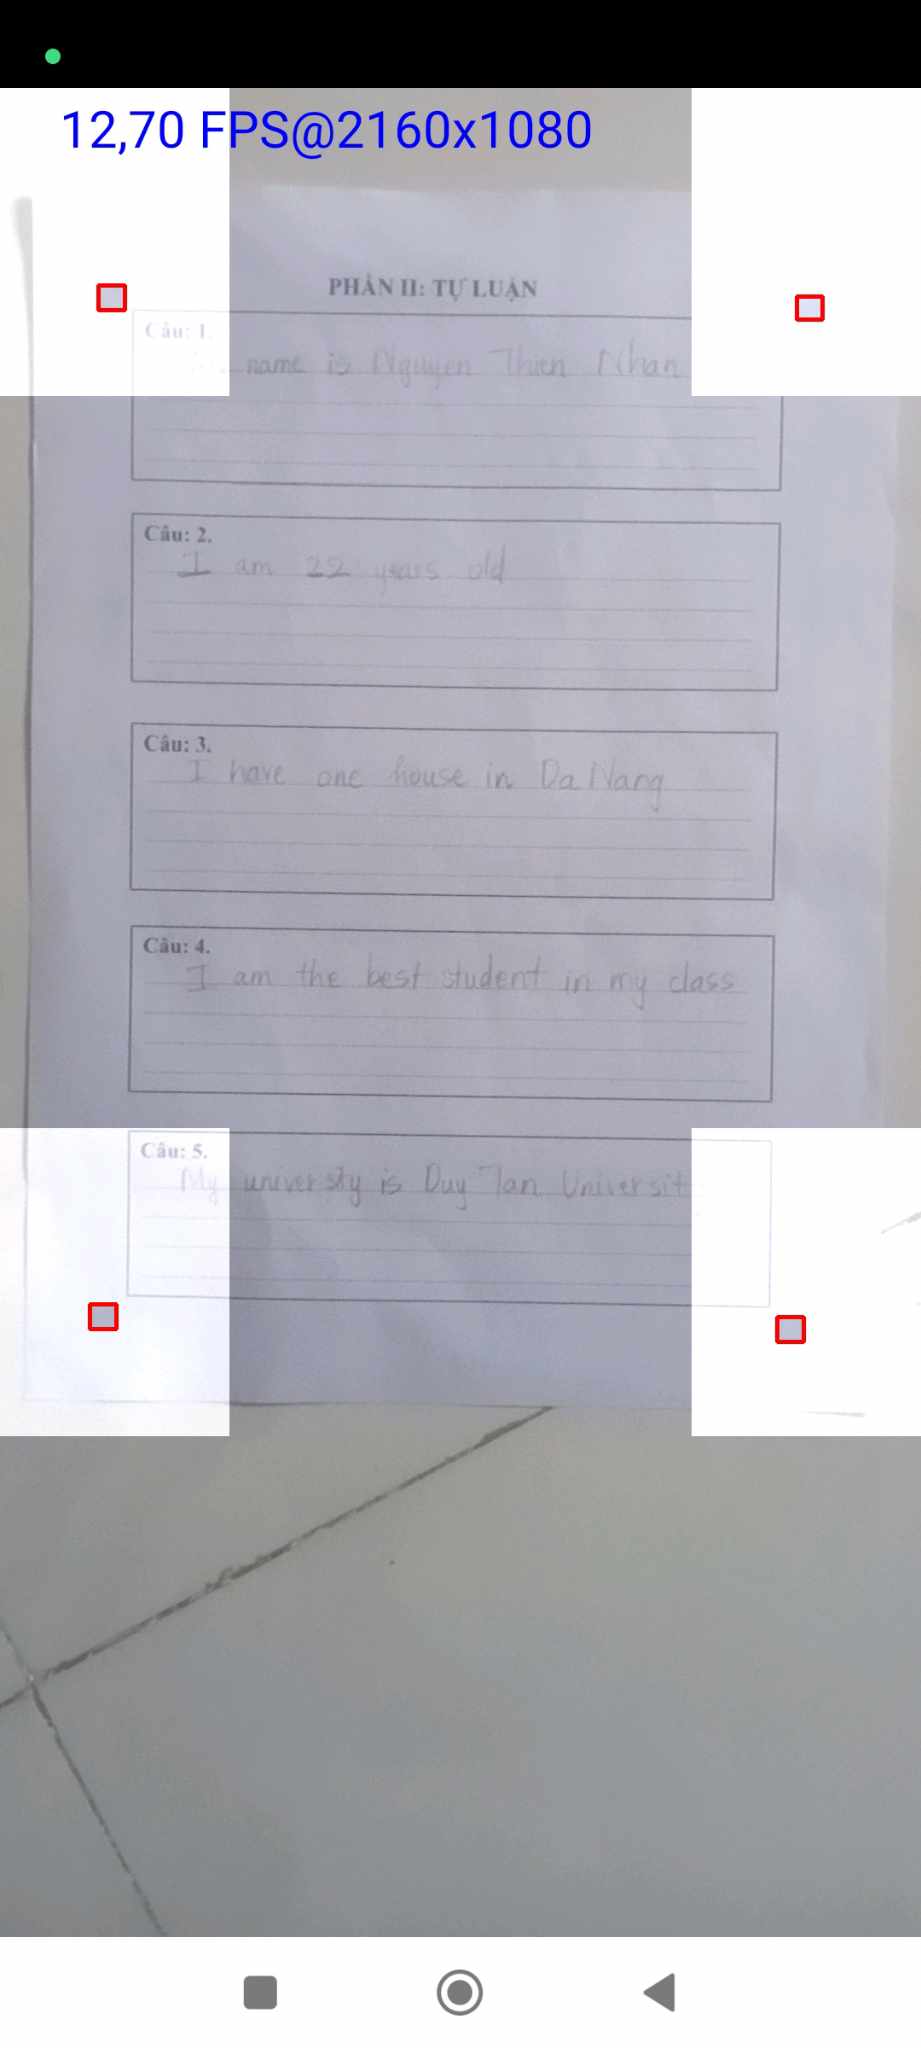 12,70 FPS@2160x1080
PHẦN II: TỰ LUẬN
Câu: 1.
name is Nguyen Thien Nhan
Câu: 2.
I am 22 years old
Câu: 3.
I have one house in Da Nang
Câu: 4.
I am the best student in my class
Câu: 5.
My university is Duy Tan Universit